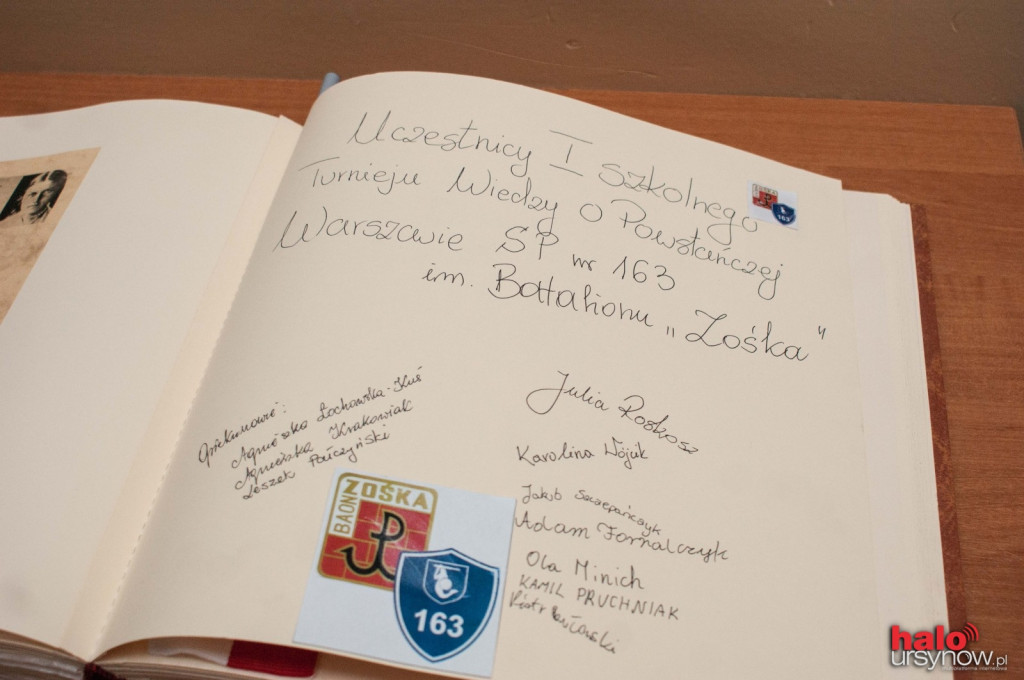 Uczestnicy I szkolnego
Turnieju Wiedzy o Powstańczej
Warszawie SP nr 163
im. Batalionu „Zośka"
163
Opiekunowie:
Agnieszka Lochowska-Kuś
Agnieszka Krakowiak
Leszek
Julia Roskosz
Karolina Wójcik
Jakub Szczepańczyk
Adam Fornalczyk
Ola Minich
KAMIL PRUCHNIAK
Piotr
BAON ZOŚKA
163
halo
ursynow.pl